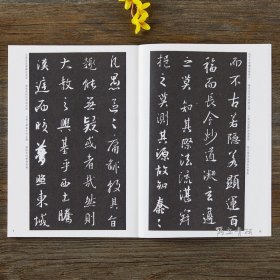 而不古若隱若顯運百
福而長今妙道凝玄遵
之莫知其際法流湛寂
挹之莫測其源故知蠢〻
凡愚區〻庸鄙投其旨
趣能無疑或者哉然則
大教之興基乎西土騰
漢庭而皎夢照東域